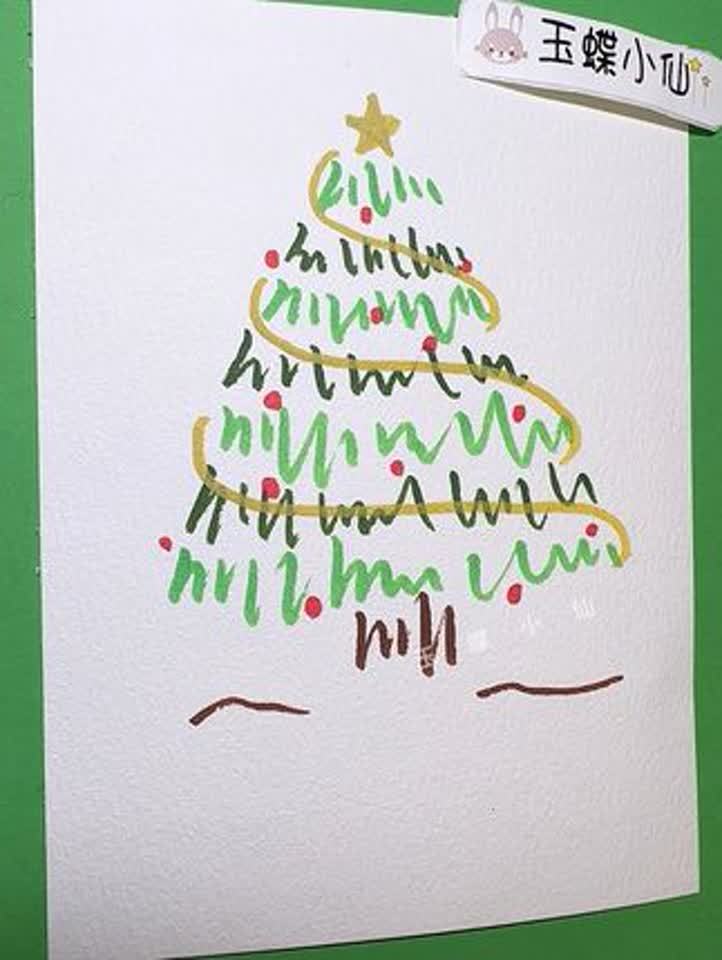 玉蝶小仙